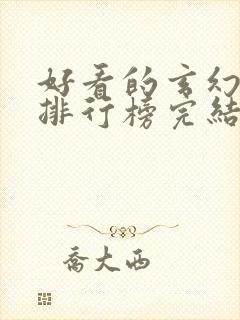 好看的玄幻
排行榜完结
乔大西